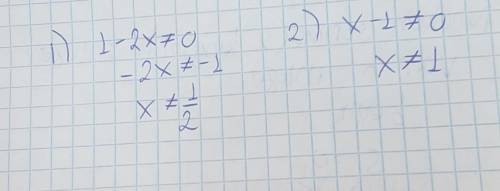 1) 1-2x≠0
-2x≠-1
x≠1/2
2) x-1≠0
x≠1